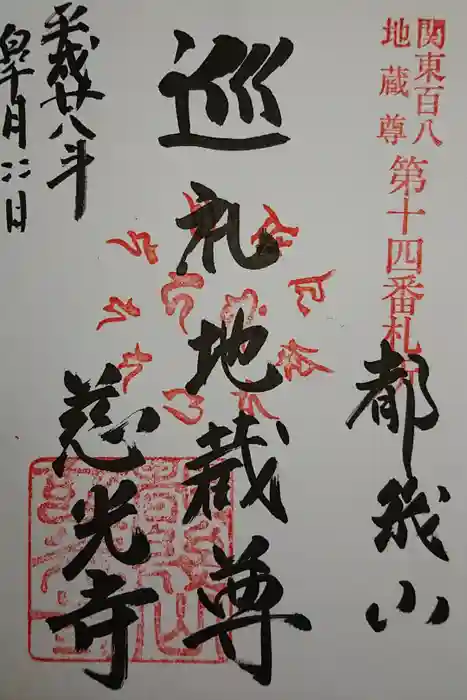 関東百八
地蔵尊
第十四番札所
都幾山
巡礼地蔵尊
慈光寺
平成廿八年
皐月六日